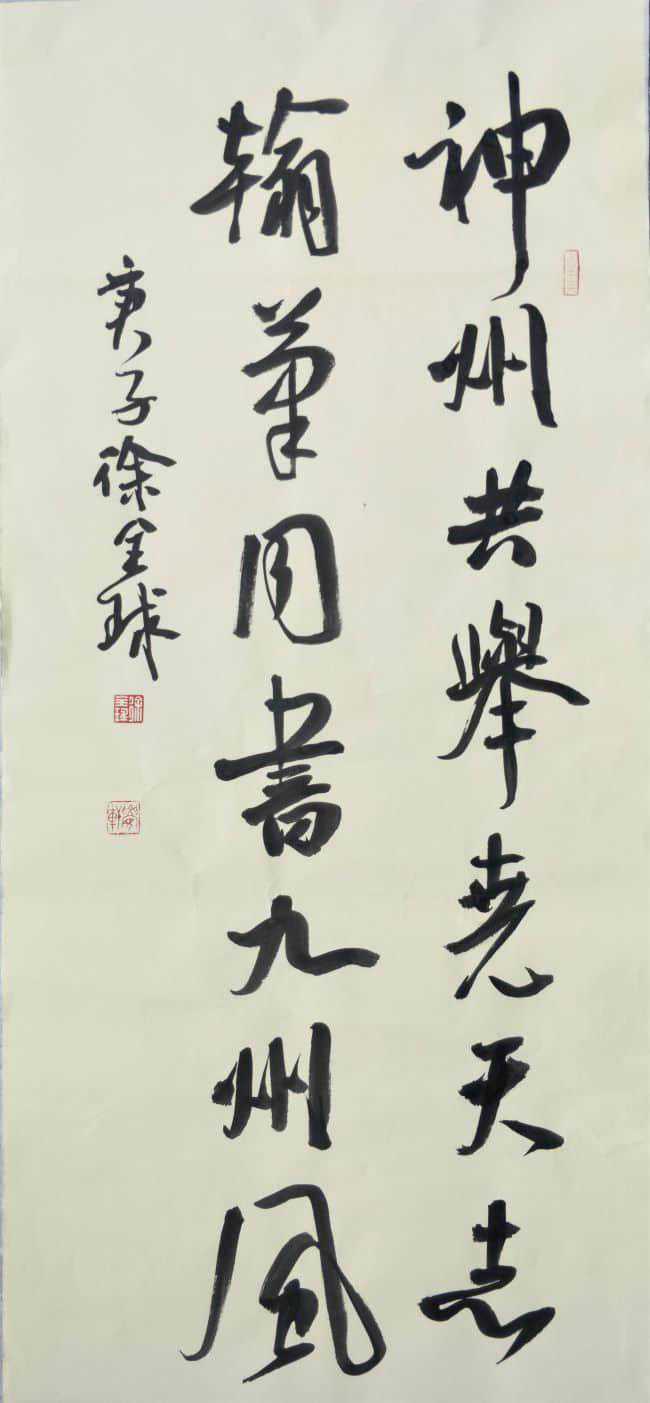 神州共舉尭天志
翰筆同書九州風
庚子徐全球